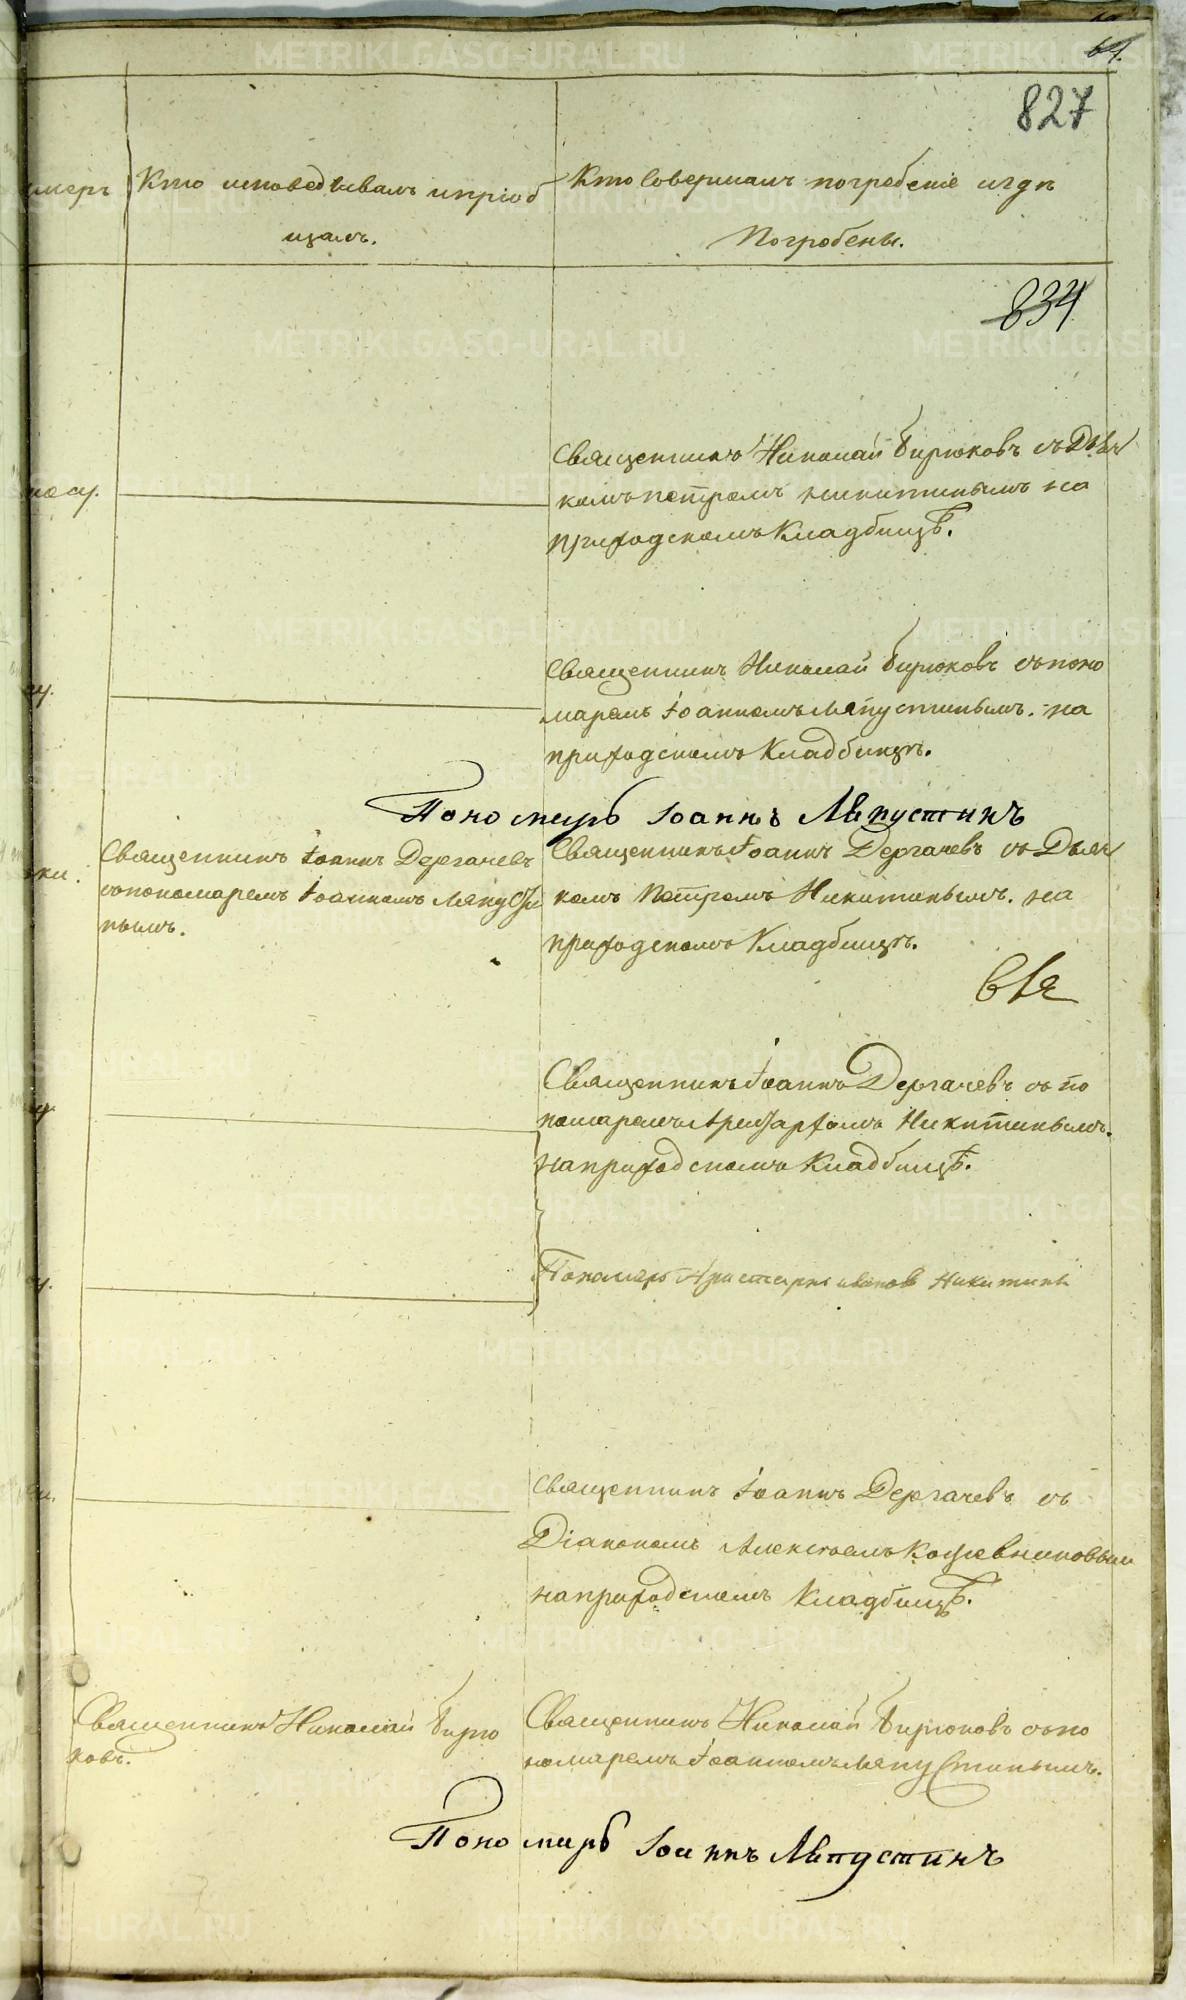 827
Кто исповедывалъ и пріоб
щалъ.
Кто Совершалъ погребеніе и гдѣ
Погребены.
834
Священникъ Николай Бирюковъ съ Дьяч
комъ Петромъ Никитинымъ на
приходскомъ Кладбищѣ.
Священникъ Николай Бирюковъ съ поно
маремъ Іоанномъ Ляпустинымъ. на
приходскомъ Кладбищѣ.
Пономарь Іоаннъ Ляпустинъ
Священникъ Іоаннъ Дергачевъ
съ пономаремъ Іоанномъ Ляпусти
нымъ.
Священникъ Іоаннъ Дергачевъ съ Дьяч
комъ Петромъ Никитинымъ. на
приходскомъ Кладбищѣ.
Священникъ Іоаннъ Дергачевъ съ по
номаремъ Аристархомъ Никитинымъ.
на приходскомъ Кладбищѣ.
Пономарь Аристархъ Ивановъ Никитинъ
Священникъ Іоаннъ Дергачевъ съ
Діакономъ Алексѣемъ Кожевниковым
на приходскомъ Кладбищѣ.
Священникъ Николай Бирю
ковъ.
Священникъ Николай Бирюковъ съ по
номаремъ Іоанномъ Ляпустинымъ.
Пономарь Іоаннъ Ляпустинъ
METRIKI.GASO-URAL.RU